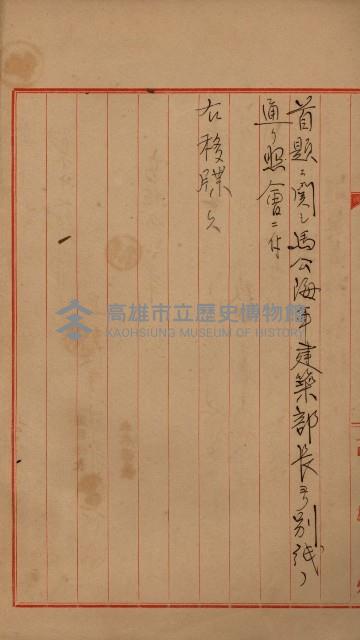 首題ニ関シ馬公海軍建築部長ヨリ別紙ノ
通リ照會ニ付
右移牒ス
高雄市立歷史博物館
KAOHSIUNG MUSEUM OF HISTORY